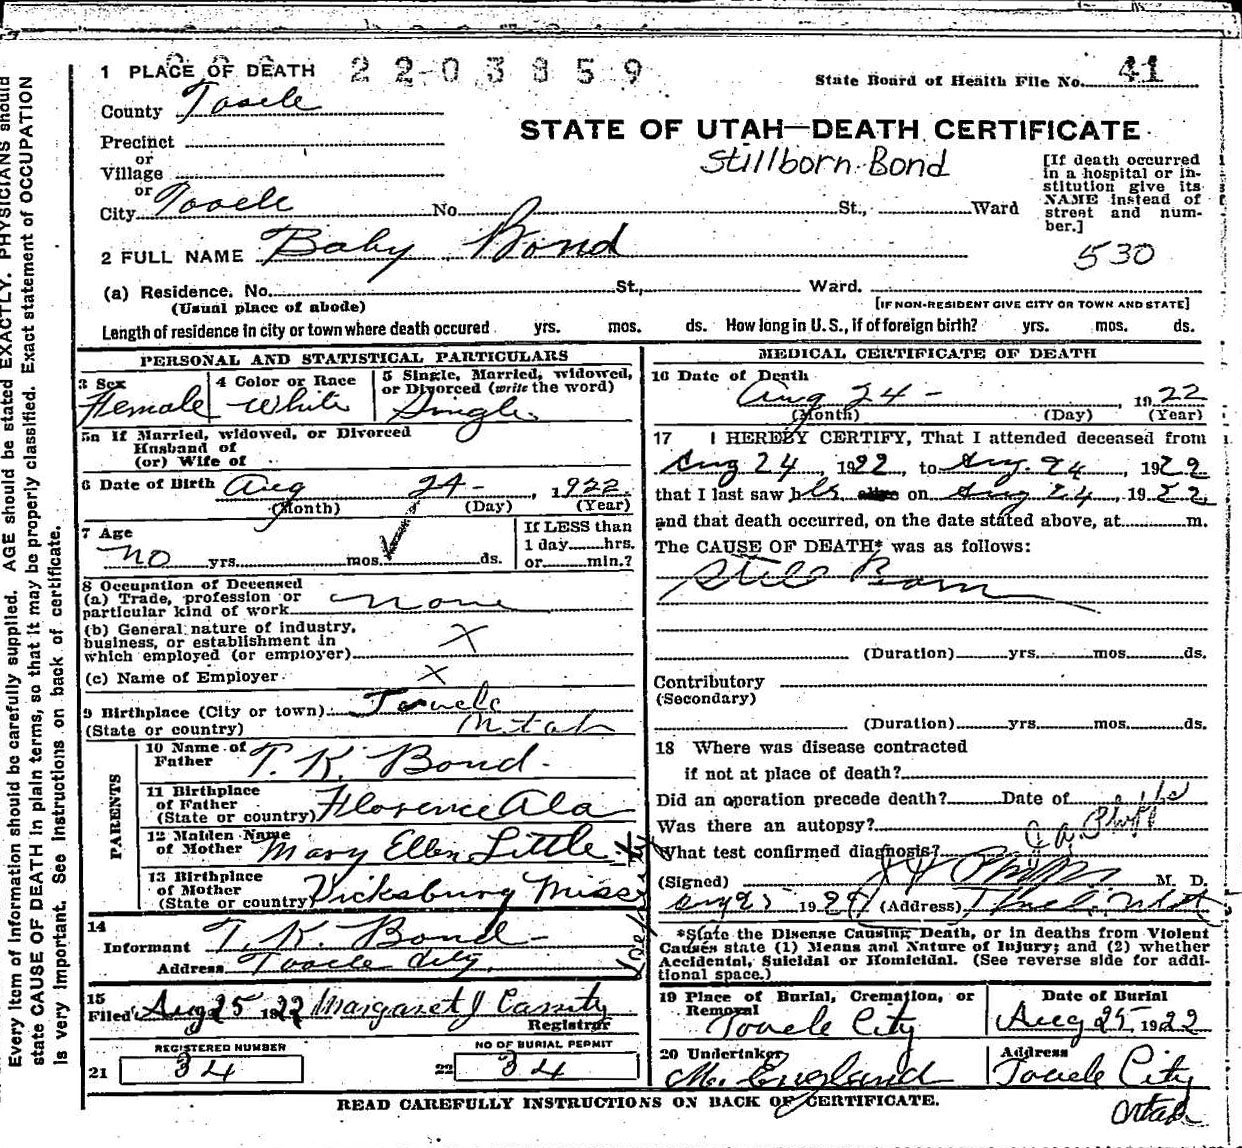 1 PLACE OF DEATH 2203859
State Board of Health File No. 41
County Tooele
STATE OF UTAH—DEATH CERTIFICATE
Precinct
or
Village
Stillborn Bond
or
City Tooele No. St., Ward
[If death occurred
in a hospital or in-
stitution give its
NAME instead of
street and num-
ber.]
2 FULL NAME Baby Bond
530
(a) Residence. No. St., Ward.
(Usual place of abode) [IF NON-RESIDENT GIVE CITY OR TOWN AND STATE]
Length of residence in city or town where death occured yrs. mos. ds. How long in U. S., if of foreign birth? yrs. mos. ds.
PERSONAL AND STATISTICAL PARTICULARS
3 Sex
Female
4 Color or Race
White
5 Single, Married, widowed,
or Divorced (write the word)
Single
5a If Married, widowed, or Divorced
Husband of
(or) Wife of
6 Date of Birth Aug 24- , 1922
(Month) (Day) (Year)
7 Age
no yrs. mos. ds.
If LESS than
1 day hrs.
or min.?
8 Occupation of Deceased
(a) Trade, profession or
particular kind of work none
(b) General nature of industry,
business, or establishment in
which employed (or employer) X
(c) Name of Employer X
9 Birthplace (City or town) Tooele
(State or country) Utah
PARENTS
10 Name of
Father T. K. Bond-
11 Birthplace
of Father
(State or country) Florence Ala
12 Maiden Name
of Mother Mary Ellen Little
13 Birthplace
of Mother
(State or country) Vicksburg Miss
14
Informant T. K. Bond-
Address Tooele City,
15
Filed Aug 25 1922 Margaret J
Registrar
REGISTERED NUMBER
21 34
NO OF BURIAL PERMIT
22 34
MEDICAL CERTIFICATE OF DEATH
16 Date of Death
Aug 24- , 1922
(Month) (Day) (Year)
17 I HEREBY CERTIFY, That I attended deceased from
Aug 24 , 1922 , to Aug. 24 , 1922
that I last saw h alive on Aug 24 , 1922
and that death occurred, on the date stated above, at m.
The CAUSE OF DEATH* was as follows:
Still Born
(Duration) yrs. mos. ds.
Contributory
(Secondary)
(Duration) yrs. mos. ds.
18 Where was disease contracted
if not at place of death?
Did an operation precede death? Date of
Was there an autopsy?
What test confirmed diagnosis?
(Signed) M. D.
Aug 25 192 (Address) Tooele, Utah
*State the Disease Causing Death, or in deaths from Violent
Causes state (1) Means and Nature of Injury; and (2) whether
Accidental, Suicidal or Homicidal. (See reverse side for addi-
tional space.)
19 Place of Burial, Cremation, or
Removal
Tooele City
Date of Burial
Aug 25, 1922
20 Undertaker
M. England
Address
Tooele City
Utah
READ CAREFULLY INSTRUCTIONS ON BACK OF CERTIFICATE.
Every item of information should be carefully supplied. AGE should be stated EXACTLY. PHYSICIANS should
state CAUSE OF DEATH in plain terms, so that it may be properly classified. Exact statement of OCCUPATION
is very important. See instructions on back of certificate.